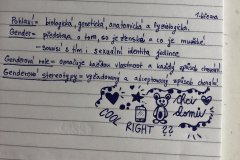 Pohlaví = biologická, genetická, anatomická a fyziologická.
Gender = představa o tom, co je ženské a co je mužské
- souvisí s tím i sexuální identita jedince
Genderová role = označuje každou vlastnost a každý způsob chování
Genderové stereotypy = vyžadovaný a akceptovaný způsob chování
Chci
domů
COOL
RIGHT ??